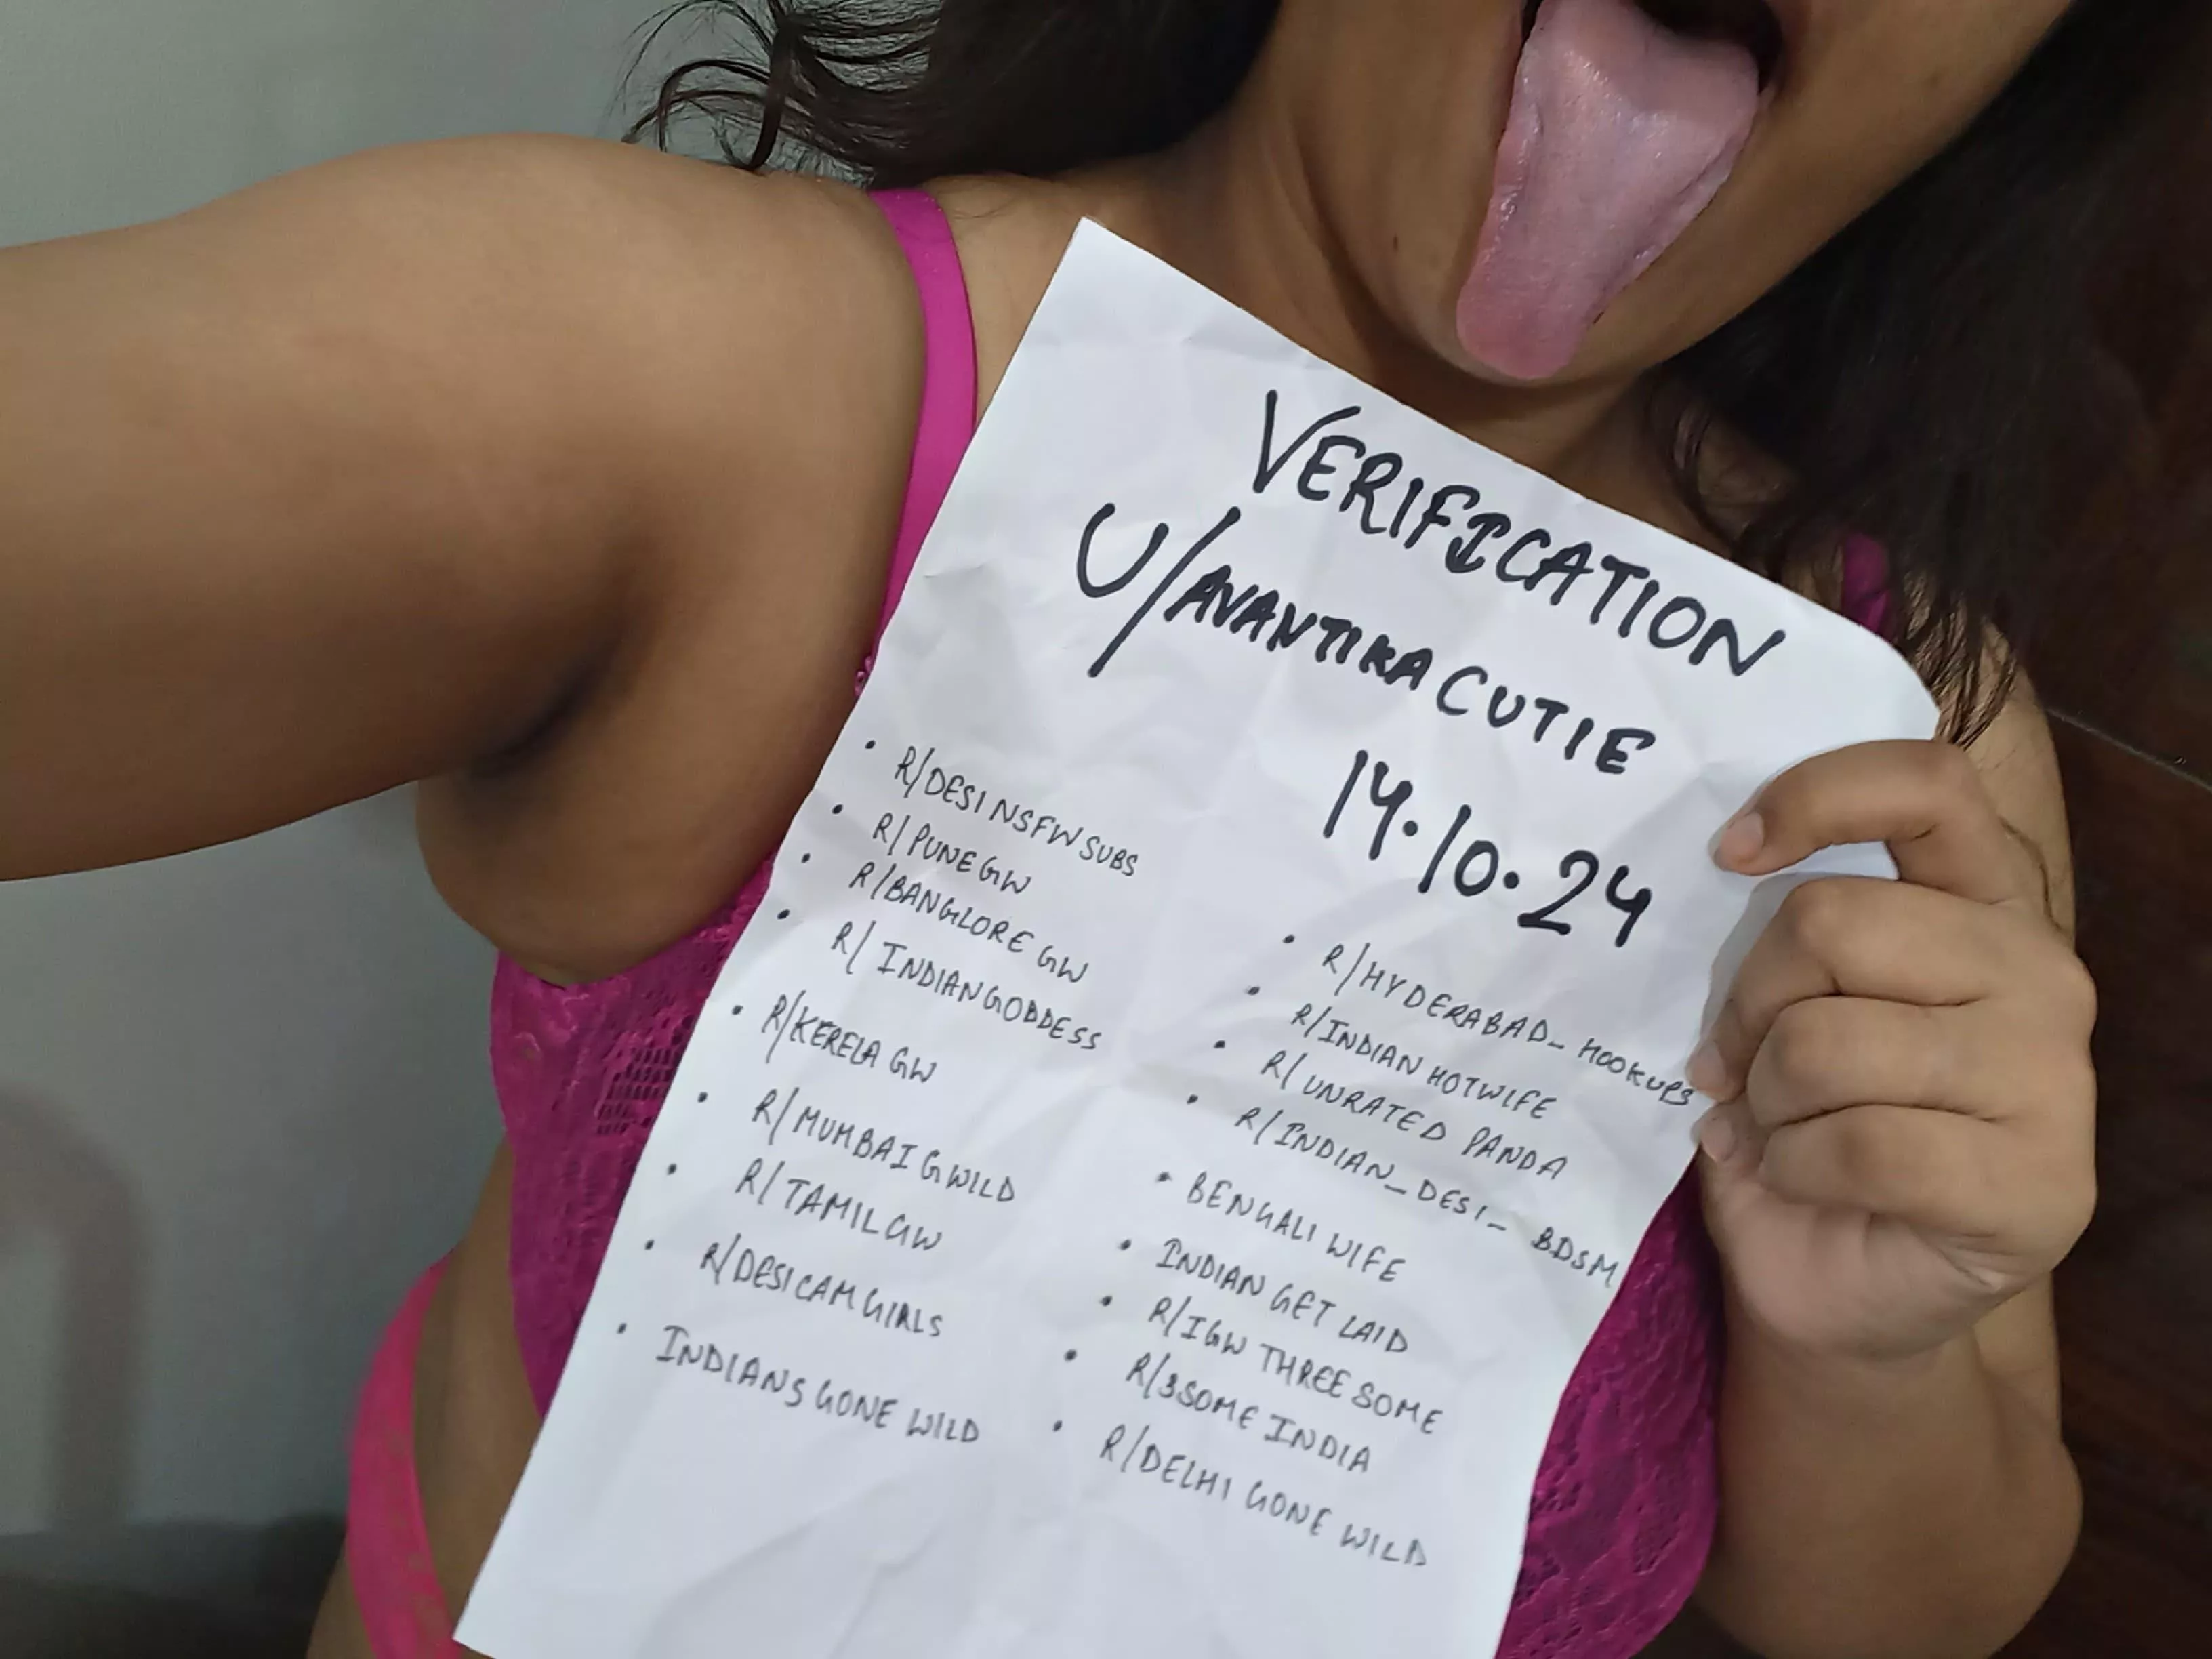 VERIFICATION
U/AVANTIKACUTIE
14.10.24
• R/DESINSFWSUBS
• R/PUNEGW
• R/BANGLOREGW
• R/INDIANGODDESS
• R/KERELAGW
• R/MUMBAIGWILD
• R/TAMILGW
• R/DESICAMGIRLS
• INDIANS GONE WILD
• R/HYDERABAD_HOOKUPS
• R/INDIAN HOTWIFE
• R/UNRATED PANDA
• R/INDIAN_DESI_BDSM
• BENGALI WIFE
• INDIAN GET LAID
• R/IGW THREE SOME
• R/3SOME INDIA
• R/DELHI GONE WILD